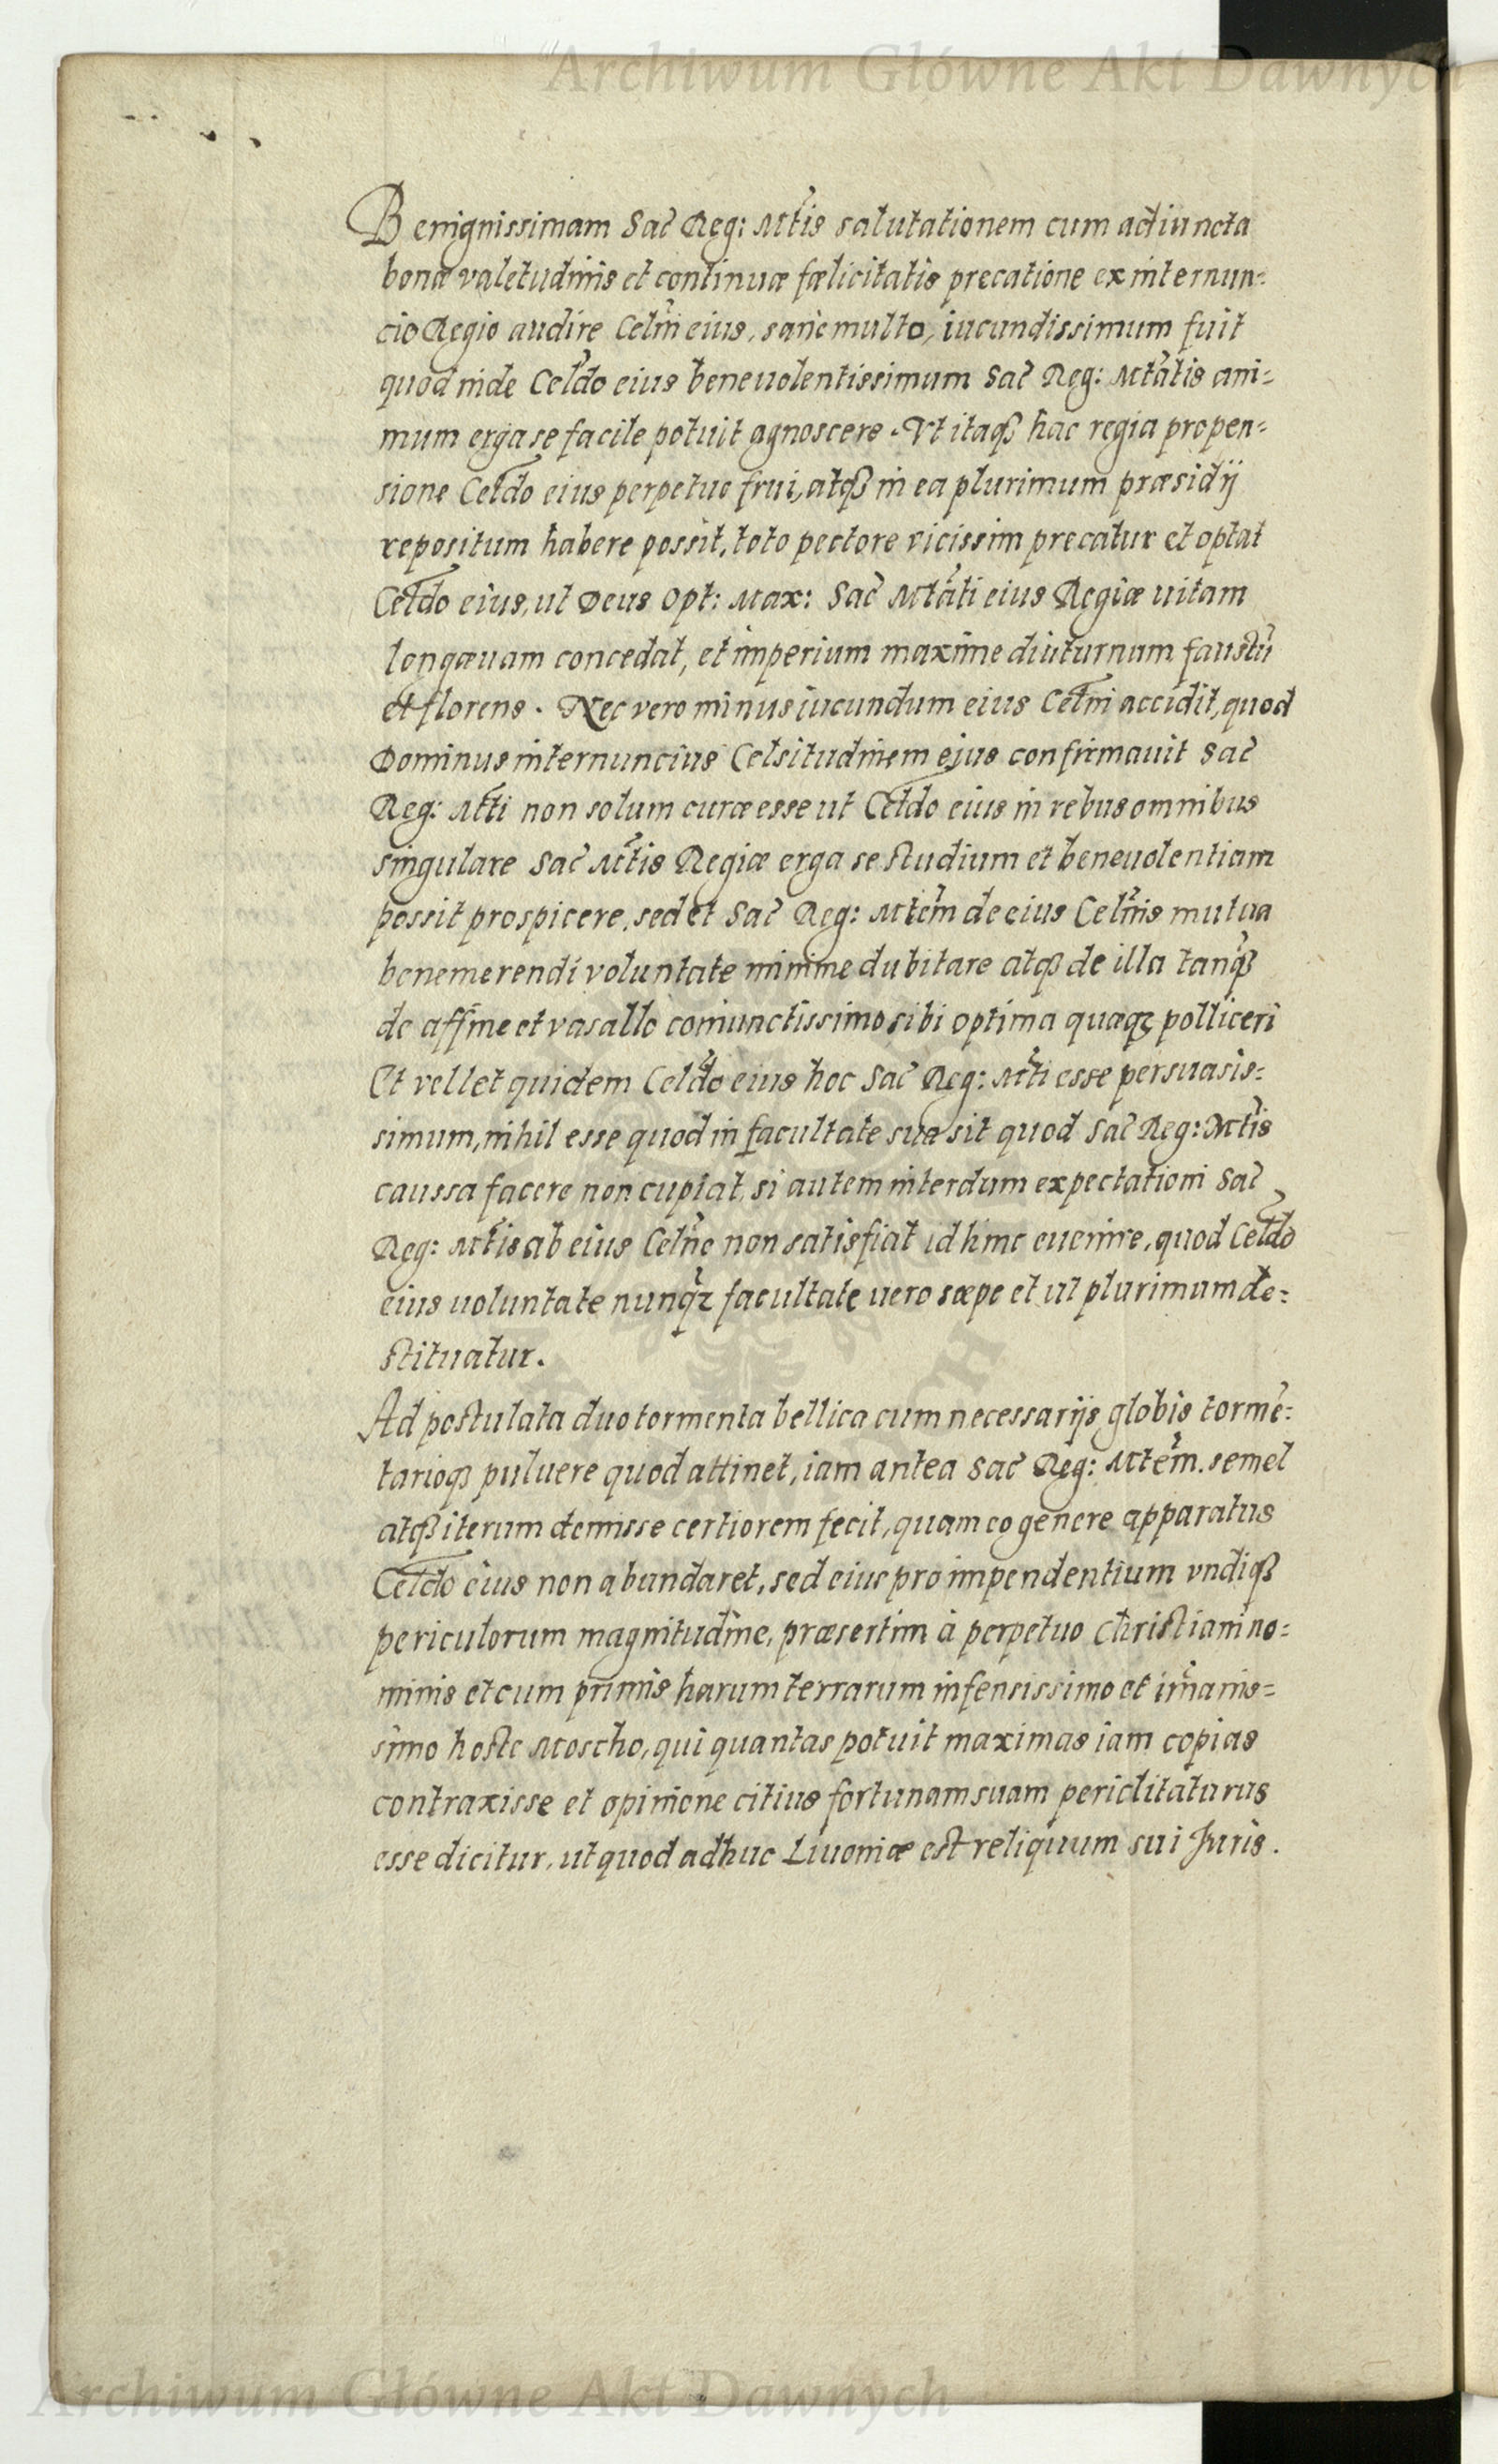 Archiwum Główne Akt Dawnych
Benignissimam Sac̃ Reg: Mt̃is salutationem cum adiuncta
bonæ valetudinis et continuæ fælicitatis precatione ex internun=
cio Regio audire Celnĩ eius, sane multo, iucundissimum fuit
quod inde Celdõ eius beneuolentissimum Sac̃ Reg: Mtãtis ani=
mum erga se facile potuit agnoscere. Vt itaqꝫ hac regia propen=
sione Celdõ eius perpetuo frui, atqꝫ in ea plurimum præsidij
repositum habere possit, toto pectore vicissim precatur et optat
Celdõ eius, ut Deus Opt: Max: Sac̃ Mtãti eius Regiæ uitam
longæuam concedat, et imperium maxime diuturnum faustũ
et florens. Nec vero minus iucundum eius Celnĩ accidit, quod
Dominus internuncius Celsitudinem ejus confirmauit Sac̃
Reg: Mt̃ti non solum curæ esse ut Celdõ eius in rebus omnibus
singulare Sac̃ Mt̃is Regiæ erga se studium et beneuolentiam
possit prospicere, sed et Sac̃ Reg: Mtem̃ de eius Celnĩs mutua
benemerendi voluntate minime dubitare atqꝫ de illa tanqꝫ̃
de affine et vasallo coniunctissimo sibi optima quæqꝫ polliceri
Et vellet quidem Celdõ eius hoc Sac̃ Reg: Mt̃ti esse persuasis=
simum, nihil esse quod in facultate sua sit quod Sac̃ Reg: Mt̃is
caussa facere non cupiat, si autem interdum expectationi Sac̃
Reg: Mt̃is ab eius Celnẽ non satisfiat id hinc euenire, quod Celdõ
eius uoluntate nunqꝫ̃ facultate uero sæpe et ut plurimum de=
stituatur.
Ad postulata duo tormenta bellica cum necessarijs globis tormẽ=
tarioqꝫ puluere quod attinet, iam antea Sac̃ Reg: Mtem̃. semel
atqꝫ iterum demisse certiorem fecit, quam eo genere apparatus
Celdõ eius non abundaret, sed eius pro impendentium vndiqꝫ
periculorum magnitudine, præsertim à perpetuo Christiani no=
minis et cum primis harum terrarum infensissimo et im̃anis=
simo hoste Moscho, qui quantas potuit maximas iam copias
contraxisse et opinione citius fortunam suam periclitaturus
esse dicitur, ut quod adhuc Liuoniæ est reliquum sui Juris.
Archiwum Główne Akt Dawnych